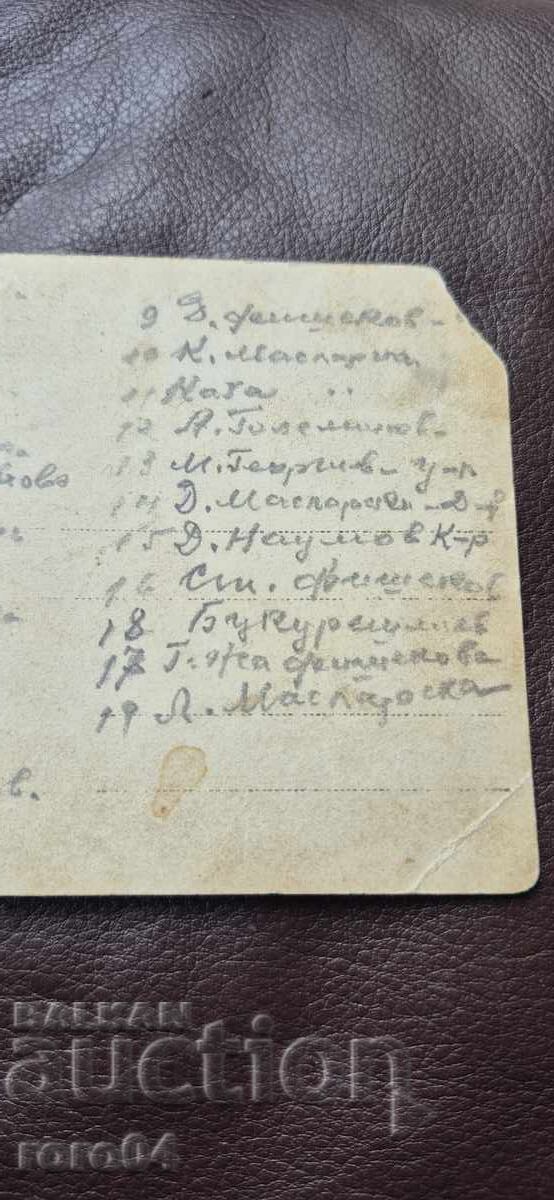 9 Д. Фишеков-
10 К. Маспарска
11 Ката "
12 А. Големинов-
13 М. Георгиев- у-л
14 Д. Маспарски-
15 Д. Наумов К-р
16 Ст. Фишеков
18 Букурещлиев
17 Г-жа Фишекова
19 Л. Маспарска
в.
BALKAN
auction
roro04